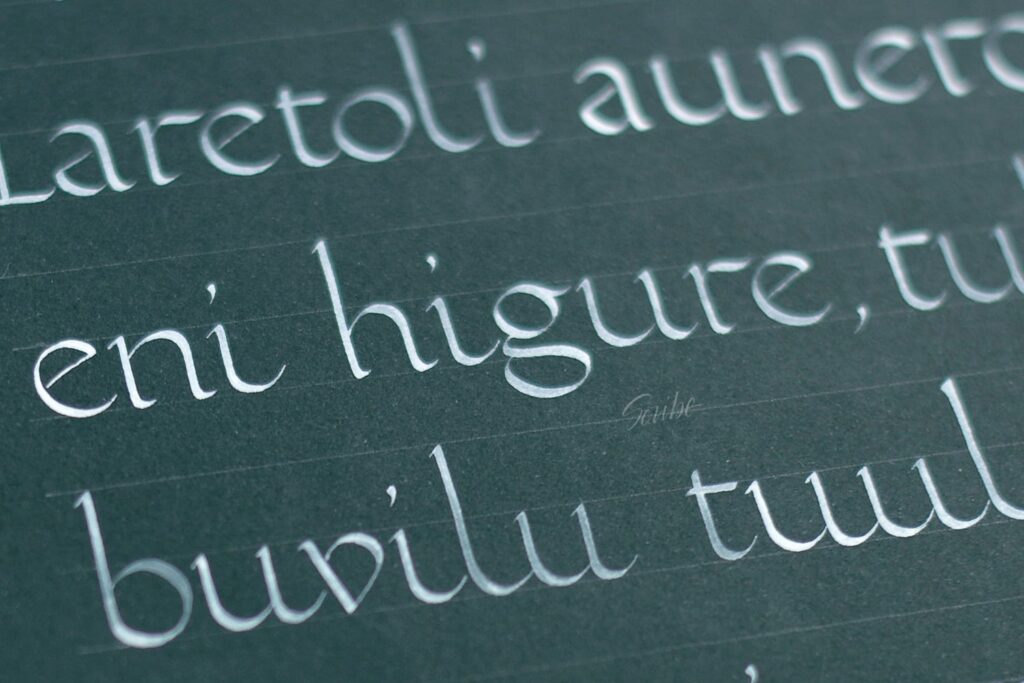 Laretoli aunero
eni higure, tu
Scribe
buvilu tuul